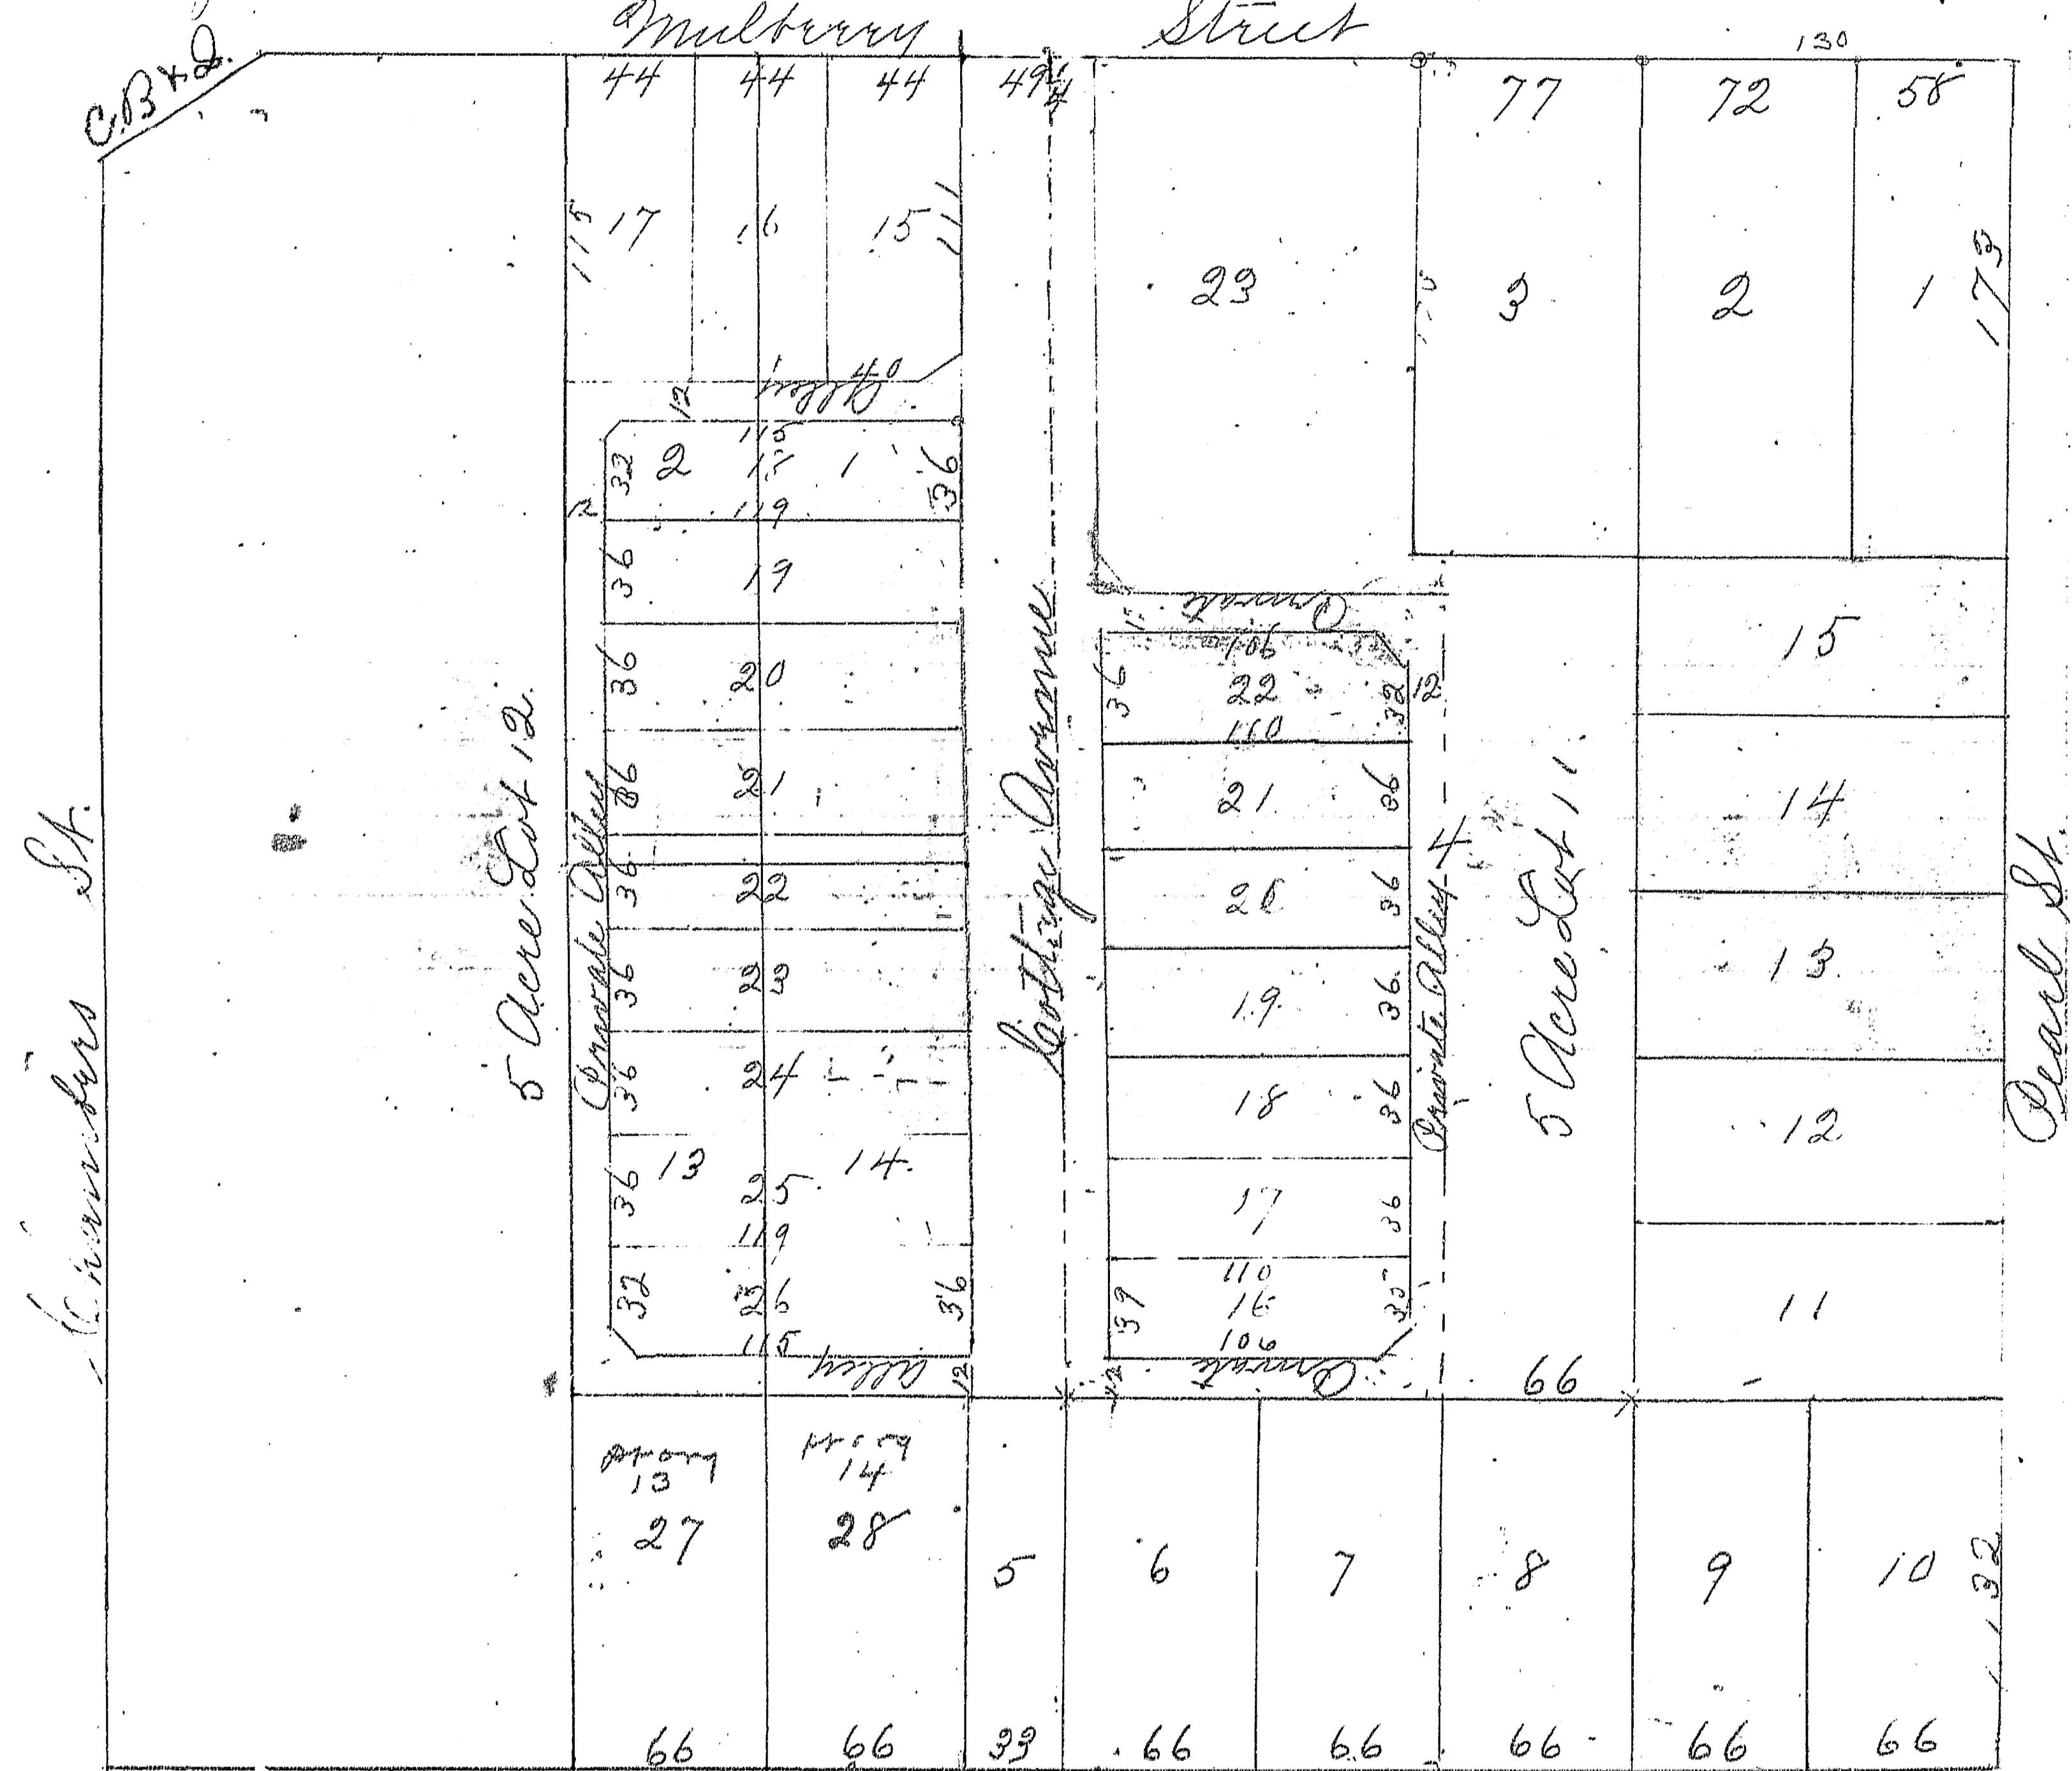 Mulberry Street
C.B & Q.
130
44 44 44 49 77 72 58
115 17 16 15 111
23 3 2 1 173
40
Alley
12
115
32 2 18 1 36
12 119
36 19
36 20
36 21
36 22
36 23
36 24
13 14
36 25
119
32 26 36
115
Alley 12
Private Alley
5 Acre Lot 12.
Chambers St.
Cottage Avenue
Private
106
36 22 32 12
110
21 36
20 36
19 36
18 36
17 36
110
39 16 35
106
12 Private
Private Alley 4
5 Acre Lot 11.
66
15
14
13
12
11
Pearl St.
13 14
27 28 5 6 7 8 9 10 132
66 66 33 66 66 66 66 66